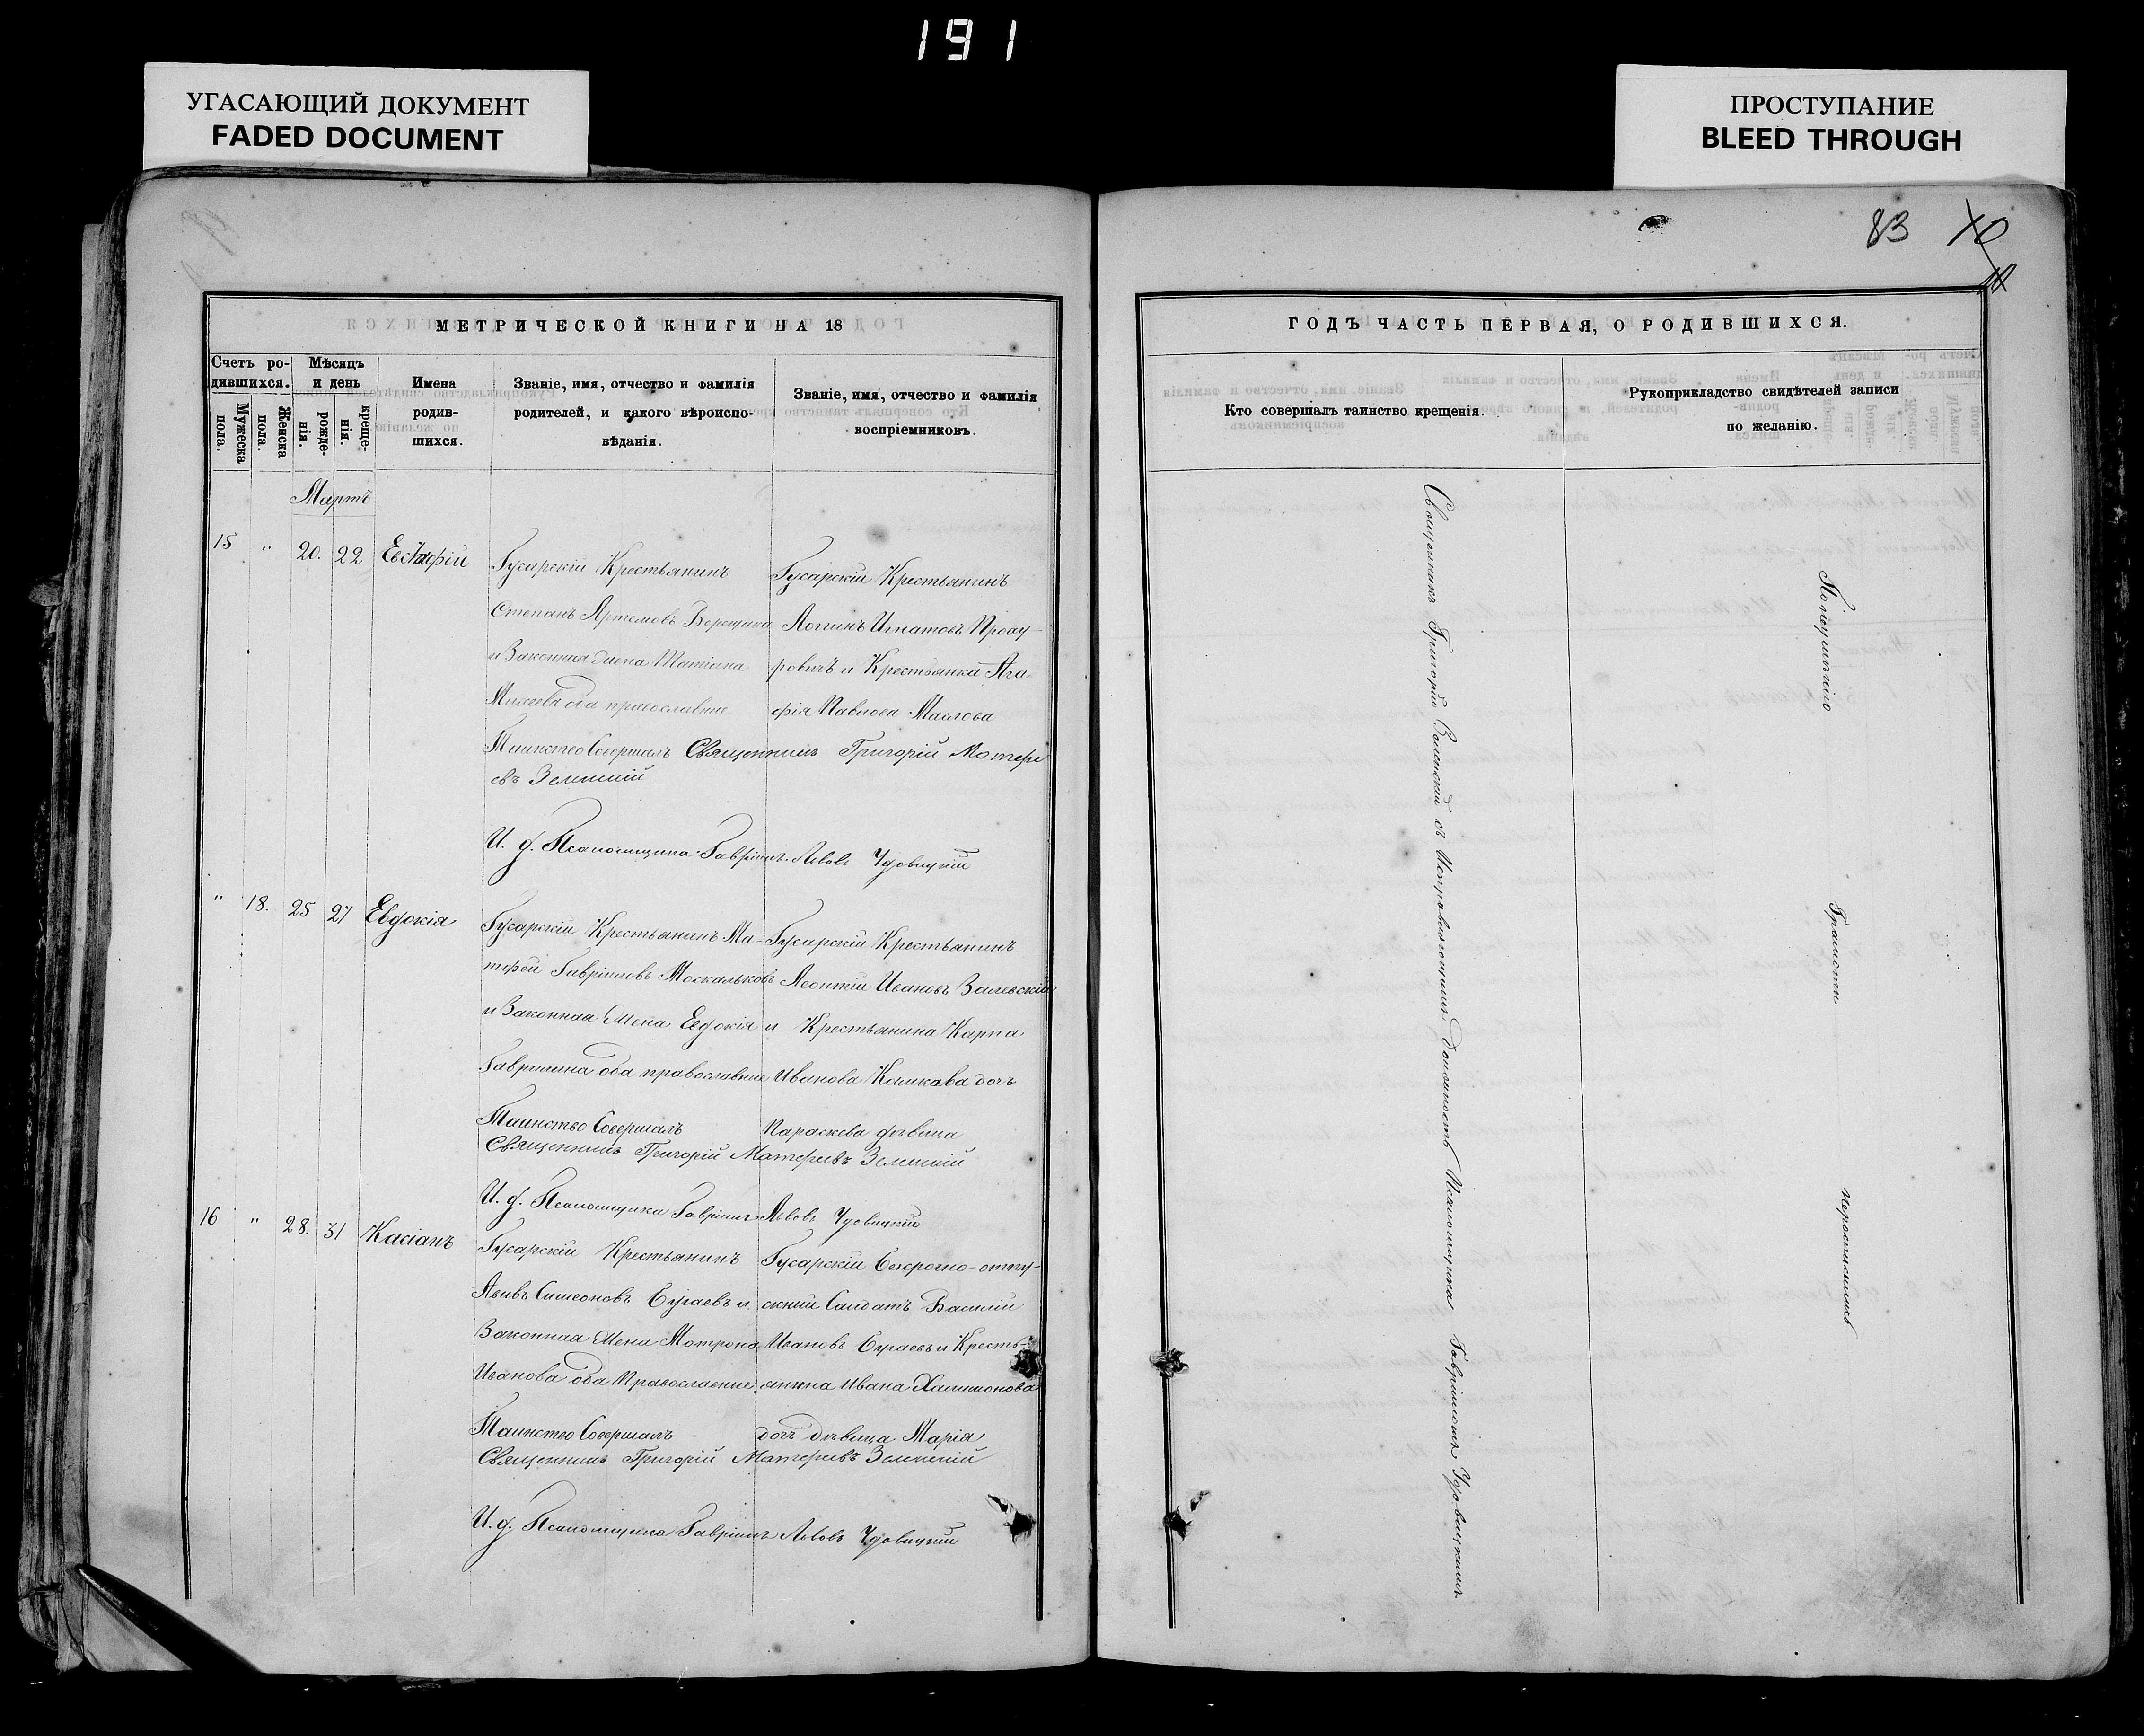 191
УГАСАЮЩИЙ ДОКУМЕНТ
FADED DOCUMENT
ПРОСТУПАНИЕ
BLEED THROUGH
83
МЕТРИЧЕСКОЙ КНИГИ НА 18
Счетъ ро-
дившихся.
Мужеска
пола.
Женска
пола.
Мѣсяцъ
и день
рожде-
нія.
креще-
нія.
Имена
родив-
шихся.
Званіе, имя, отчество и фамилія
родителей, и какого вѣроиспо-
вѣданія.
Званіе, имя, отчество и фамилія
воспріемниковъ.
Мартъ
15 " 20. 22 Евстафій
Гусарскій Крестьянинъ
Степанъ Артемовъ
и Законная жена Татіана
Михеева оба православные
Гусарскій Крестьянинъ
Логинъ Игнатовъ
ровичъ и Крестьянка Ага-
фія Павлова Маслова
Таинство Совершалъ Священникъ Григорій Матфе
евъ
И. д. Псаломщика Гавріилъ Львовъ Чудовицкій
" 18. 25 27 Евдокія
Гусарскій Крестьянинъ Ма-
тфей Гавріиловъ Москальковъ
и Законная Жена Евдокія
Гаврилина оба православные
Гусарскій Крестьянинъ
Леонтій Ивановъ Залевскій
и Крестьянина Карпа
Иванова дочь
Параскева дѣвица
Таинство Совершалъ
Священникъ Григорій Матфеевъ
И. д. Псаломщика Гавріилъ Львовъ Чудовицкій
16 " 28. 31 Касіанъ
Гусарскій Крестьянинъ
Симеоновъ Бугаевъ и
Законная Жена Мотрона
Иванова оба Православные
Гусарскій безсрочно-отпу-
скний Салдатъ Василій
Ивановъ Бугаевъ и Кресть-
янина Ивана
доч дѣвица Марія
Таинство Совершалъ
Священникъ Григорій Матфеевъ
И. д. Псаломщика Гавріилъ Львовъ Чудовицкій
ГОДЪ ЧАСТЬ ПЕРВАЯ, О РОДИВШИХСЯ.
Кто совершалъ таинство крещенія.
Рукоприкладство свидѣтелей записи
по желанію.
Священникъ Григорій съ должность Псаломщика Гавріиломъ Чудовицкимъ
грамоты